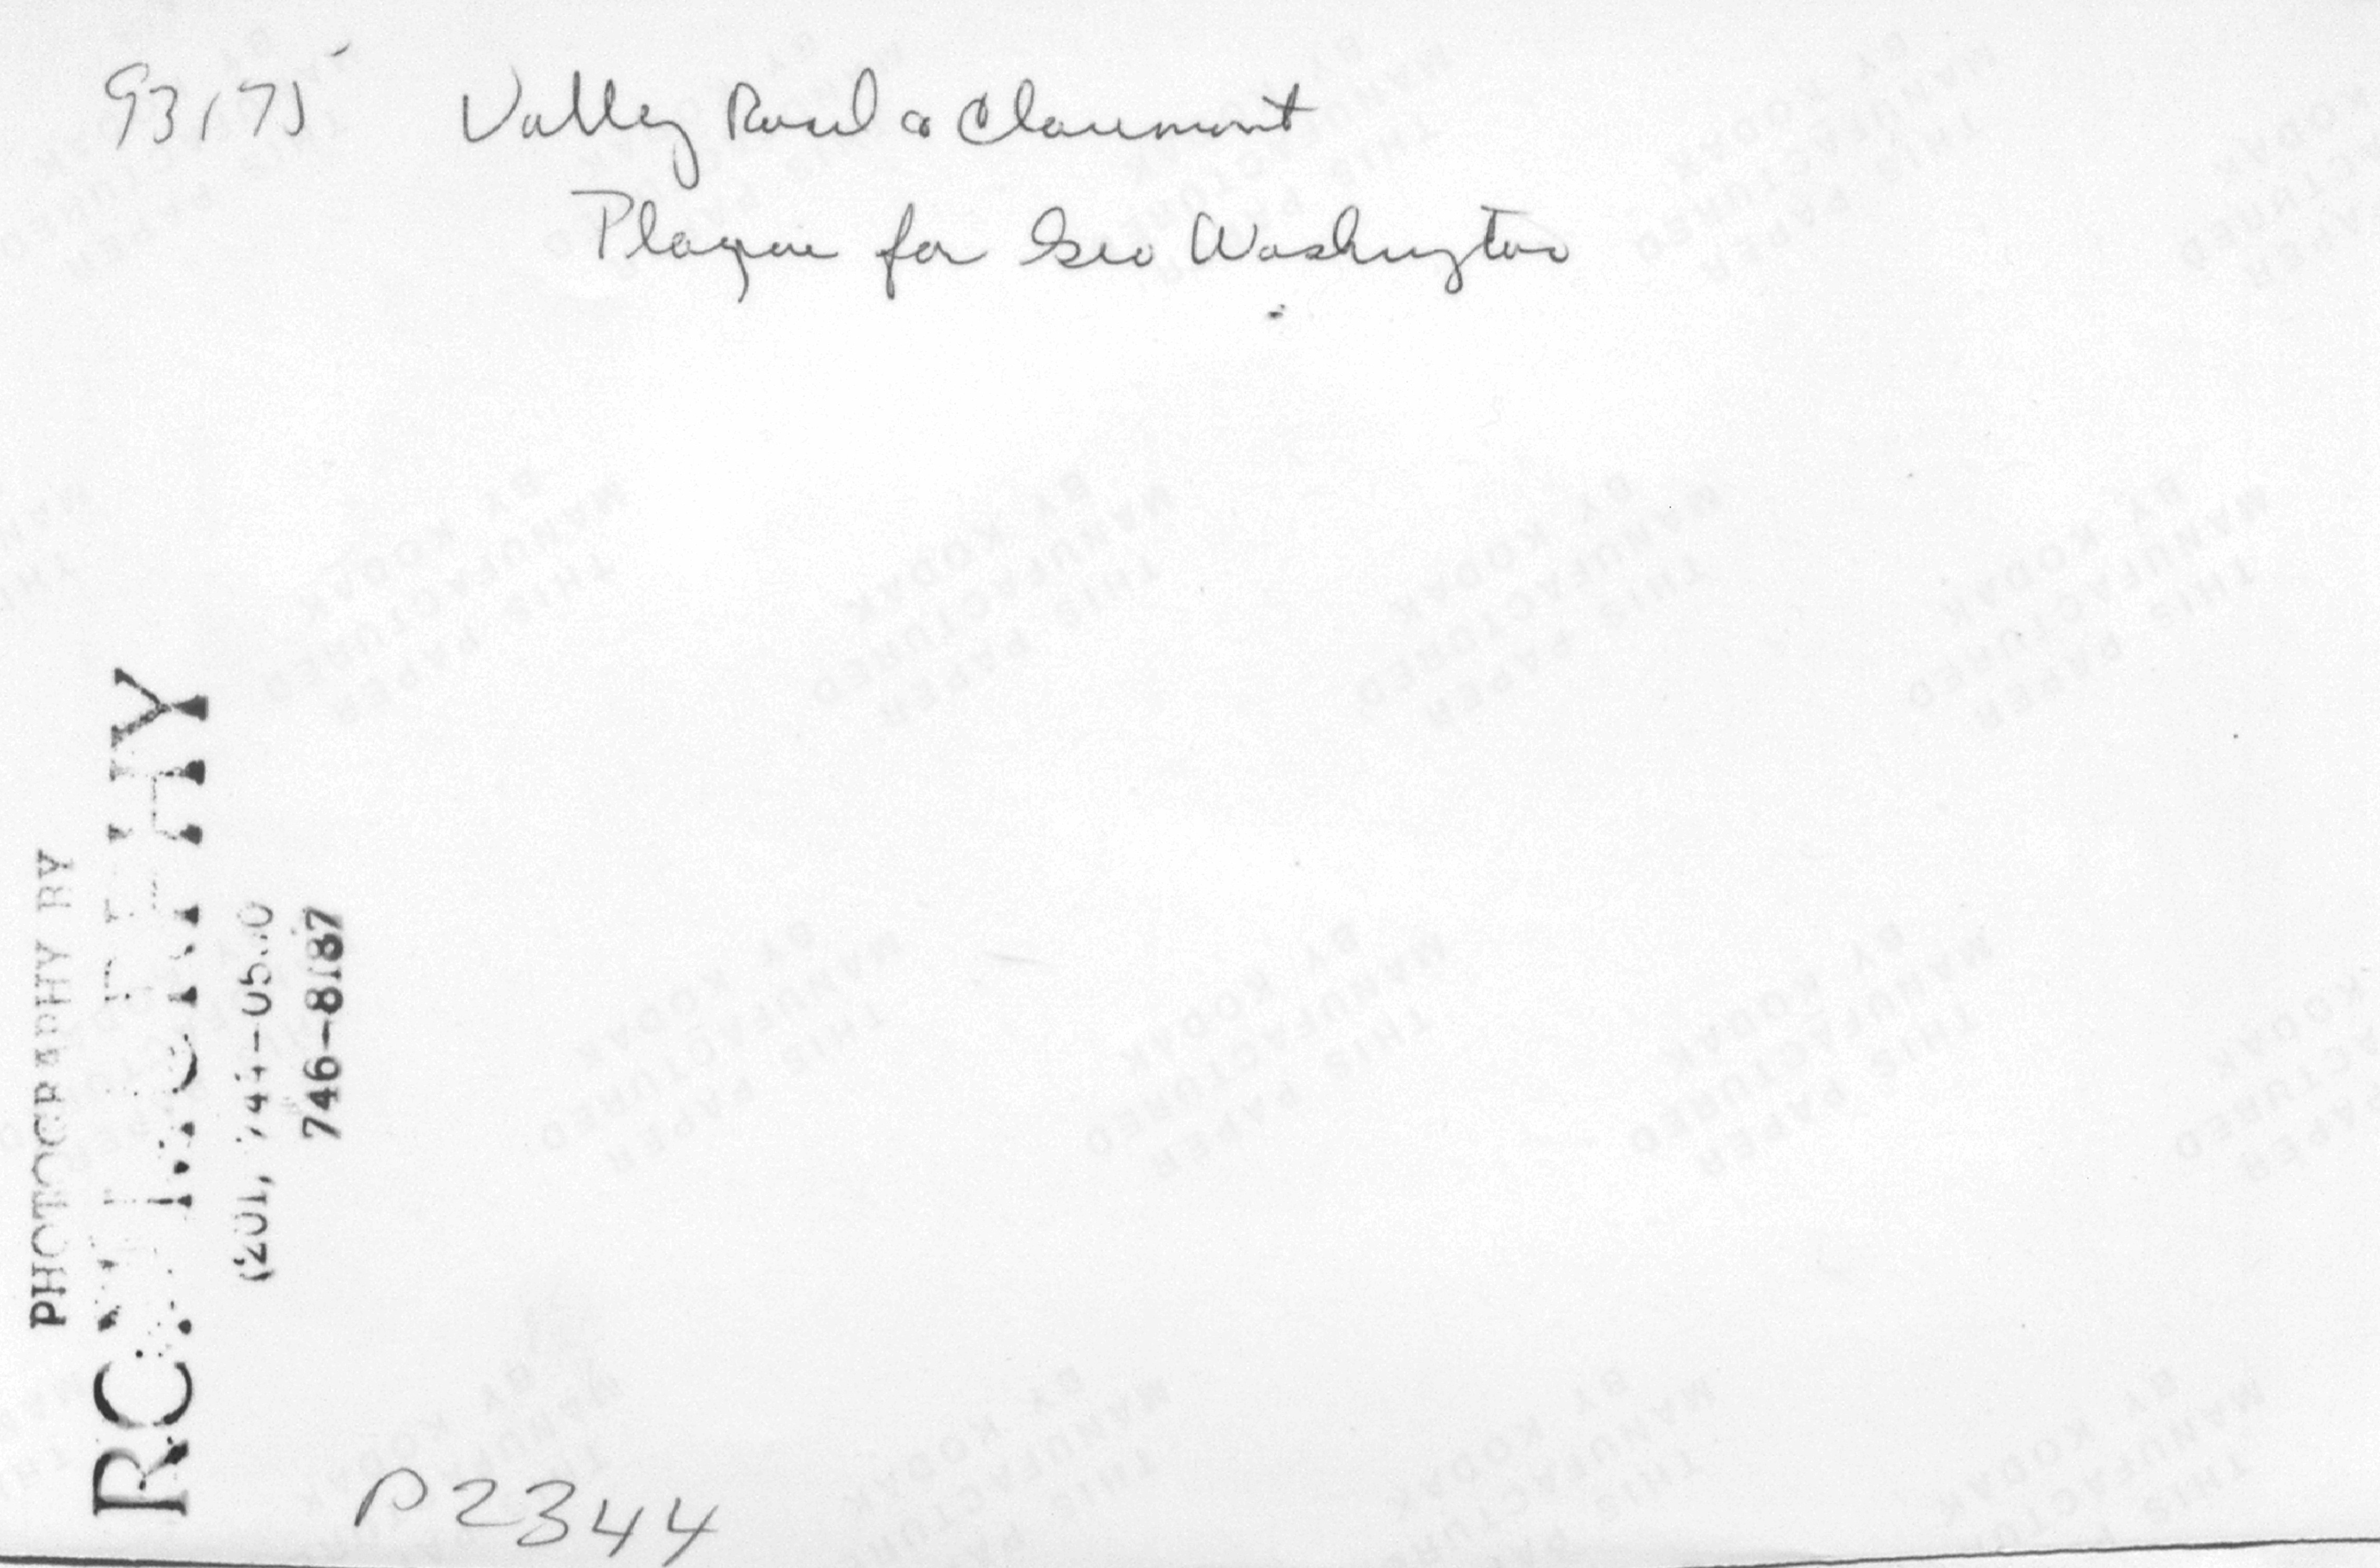 93175 Valley Road & Claremont
Plaque for Geo Washington
PHOTOGRAPHY BY
746-8187
P2344
THIS PAPER
MANUFACTURED
BY KODAK